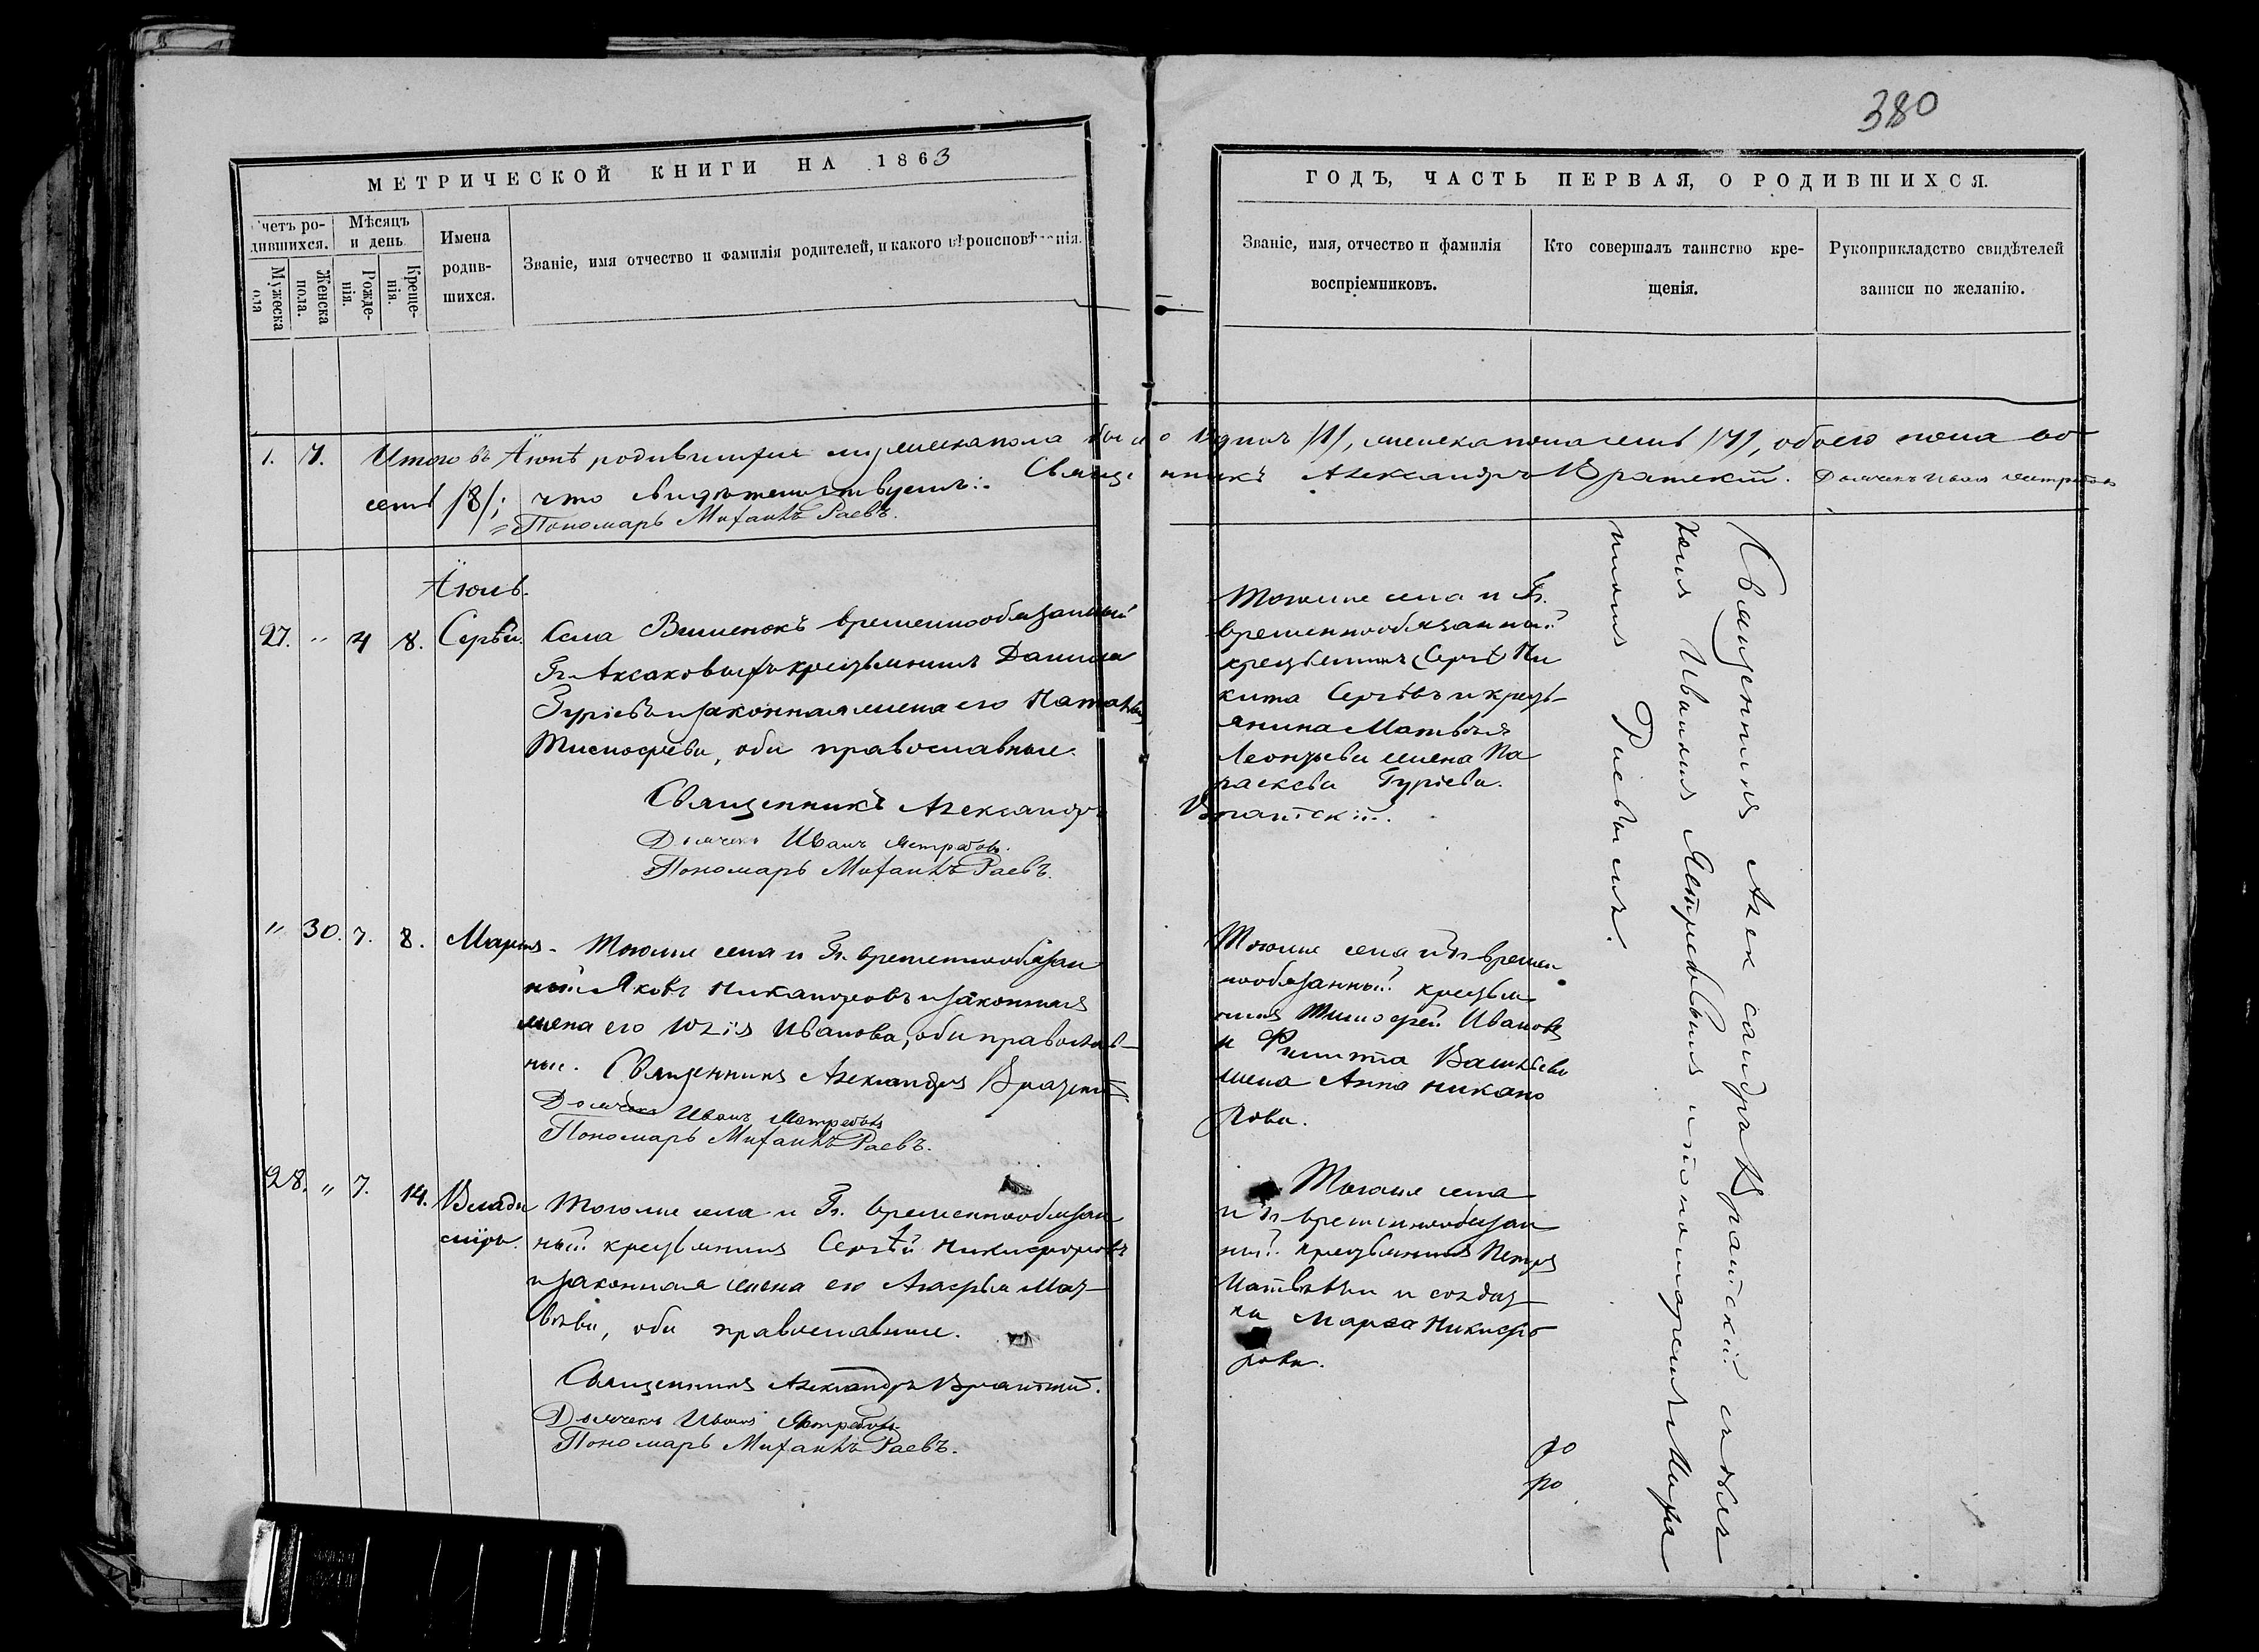 380
МЕТРИЧЕСКОЙ КНИГИ НА 1863
ГОДЪ, ЧАСТЬ ПЕРВАЯ, О РОДИВШИХСЯ.
Счетъ ро-
дившихся.
Мужеска
пола
Женска
пола.
Мѣсяцъ
и день
Рожде-
нія.
Креще-
нія.
Имена
родив-
шихся.
Званіе, имя отчество и фамилія родителей, и какого вѣроисповѣданія.
Званіе, имя, отчество и фамилія
воспріемниковъ.
Кто совершалъ таинство кре-
щенія.
Рукоприкладство свидѣтелей
записи по желанію.
1. 7. Итого въ Іюнѣ родившихся мужеска пола было Одинъ /1/, женска пола семь /7/, обоего пола во
семь /8/; что свидѣтельствуемъ: Священникъ Александръ Вратскій. Дьячекъ Иванъ Ястребовъ
Пономарь Михаилъ Раевъ.
Іюль.
27. " 4 8. Сергѣй. Села Вишенокъ временнообязанный
Гг. Аксаковыхъ крестьянинъ Данила
Гуріевъ и законная жена его Наталья
Тимофѣева, оба православные.
Священникъ Александръ Вратскій.
Дьячекъ Иванъ Ястребовъ.
Пономарь Михаилъ Раевъ.
Тогоже села и Гг.
временнообязанный
крестьянинъ Ни
кита Сергѣевъ и кресть
янина Матвѣя
Леонтьева жена Па
раскева Гуріева.
" 30. 7. 8. Марія. Тогоже села и Гг. временнообязан
ный Яковъ Никаноровъ и законная
жена его Юлія Иванова, оба православ-
ные. Священникъ Александръ Вратскій
Дьячекъ Иванъ Ястребовъ
Пономарь Михаилъ Раевъ.
Тогоже села и Гг. времен
нообязанный крестья
нинъ Тимофей Ивановъ
и Филиппа Васильева
жена Анна Никано
рова.
28. " 7. 14. Влади
міръ.
Тогоже села и Гг. временнообязан
ный крестьянинъ Сергѣй Никифоровъ
и законная жена его Агафья Мат-
вѣева, оба православные.
Священникъ Александръ Вратскій.
Дьячекъ Иванъ Ястребовъ
Пономарь Михаилъ Раевъ.
Тогоже села
и Гг. временнообязан
ный крестьянинъ Петръ
Матвѣевъ и солдат
ка Марѳа Никифо
рова.
Священникъ Александръ Вратскій съ дьяч
комъ Иваномъ Ястребовымъ и пономаремъ Миха
иломъ Раевымъ.
ро
ро